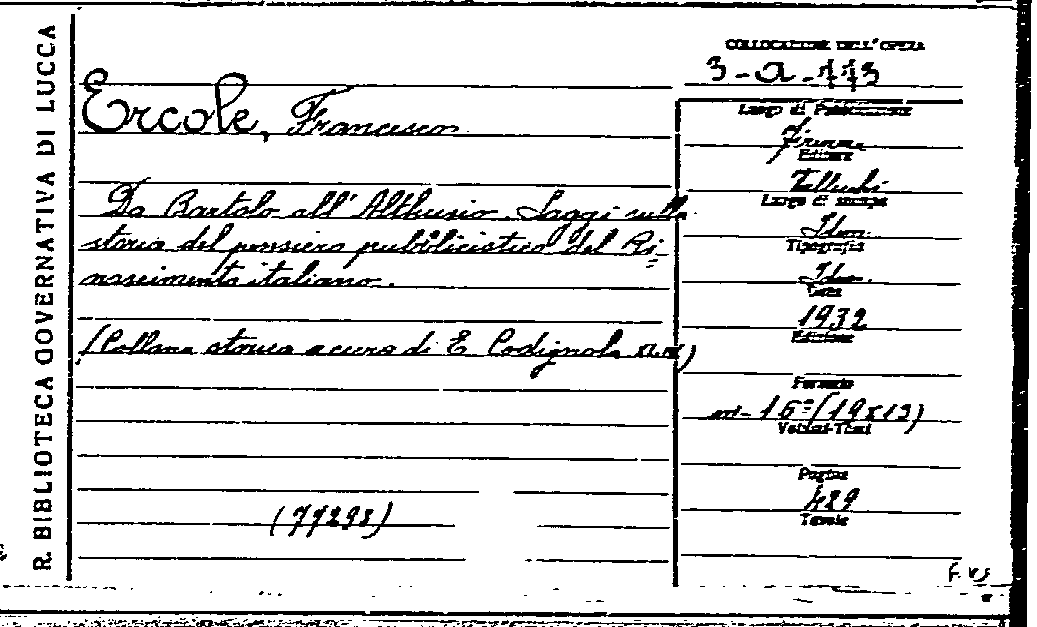 R. BIBLIOTECA GOVERNATIVA DI LUCCA
COLLOCAZIONE DELL'OPERA
3-a-113
Ercole, Francesco
Da Bartolo all'Althusio. Saggi sulla
storia del pensiero pubblicistico del Ri=
nascimento italiano.
(Collana storica a cura di E. Codignola
(77293)
Luogo di Pubblicazione
Firenze
Editore
Vallecchi
Luogo di stampa
Idem
Tipografia
Idem.
Data
1932
Edizione
Formato
16º (19x13)
Volumi-Tomi
Pagine
429
Tavole